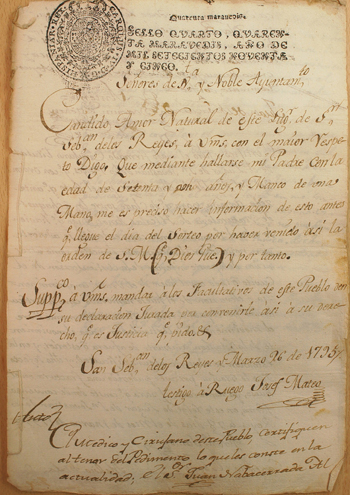 Quarenta maravedis.
SELLO QVARTO, QVAREN-
TA MARAVEDIS, AÑO DE
MIL SETECIENTOS NOVENTA
Y CINCO.
Señores de Jª y Noble Ayuntamto
Candido Amor Natural de este Sitº de Sn
Seban deles Reyes, à Vms, con el maior Respe-
to Digo, Que mediante hallarse mi Padre con la
edad de Setenta y años, y Manco de una
Mano, me es preciso hacer informacion de esto antes
q. llegue el dia del Sorteo por haver venido àsi la
orden de S. M. (q. Dios gue) y por tanto.
Suppco à Vms, mandar àlos Facultativos de este Pueblo den
su declaracion Jurada pa convenirle àsi à su dere-
cho, q. es Justicia q. pido &
San Seban delos Reyes y Marzo 26 de 1795
testigo à Ruego Josef Mateo
Auto
El Medico y Cirujano deste Pueblo, certifiquen
al tenor del Pedimento, lo que les conste en la
actualidad; el Sr Juan Al